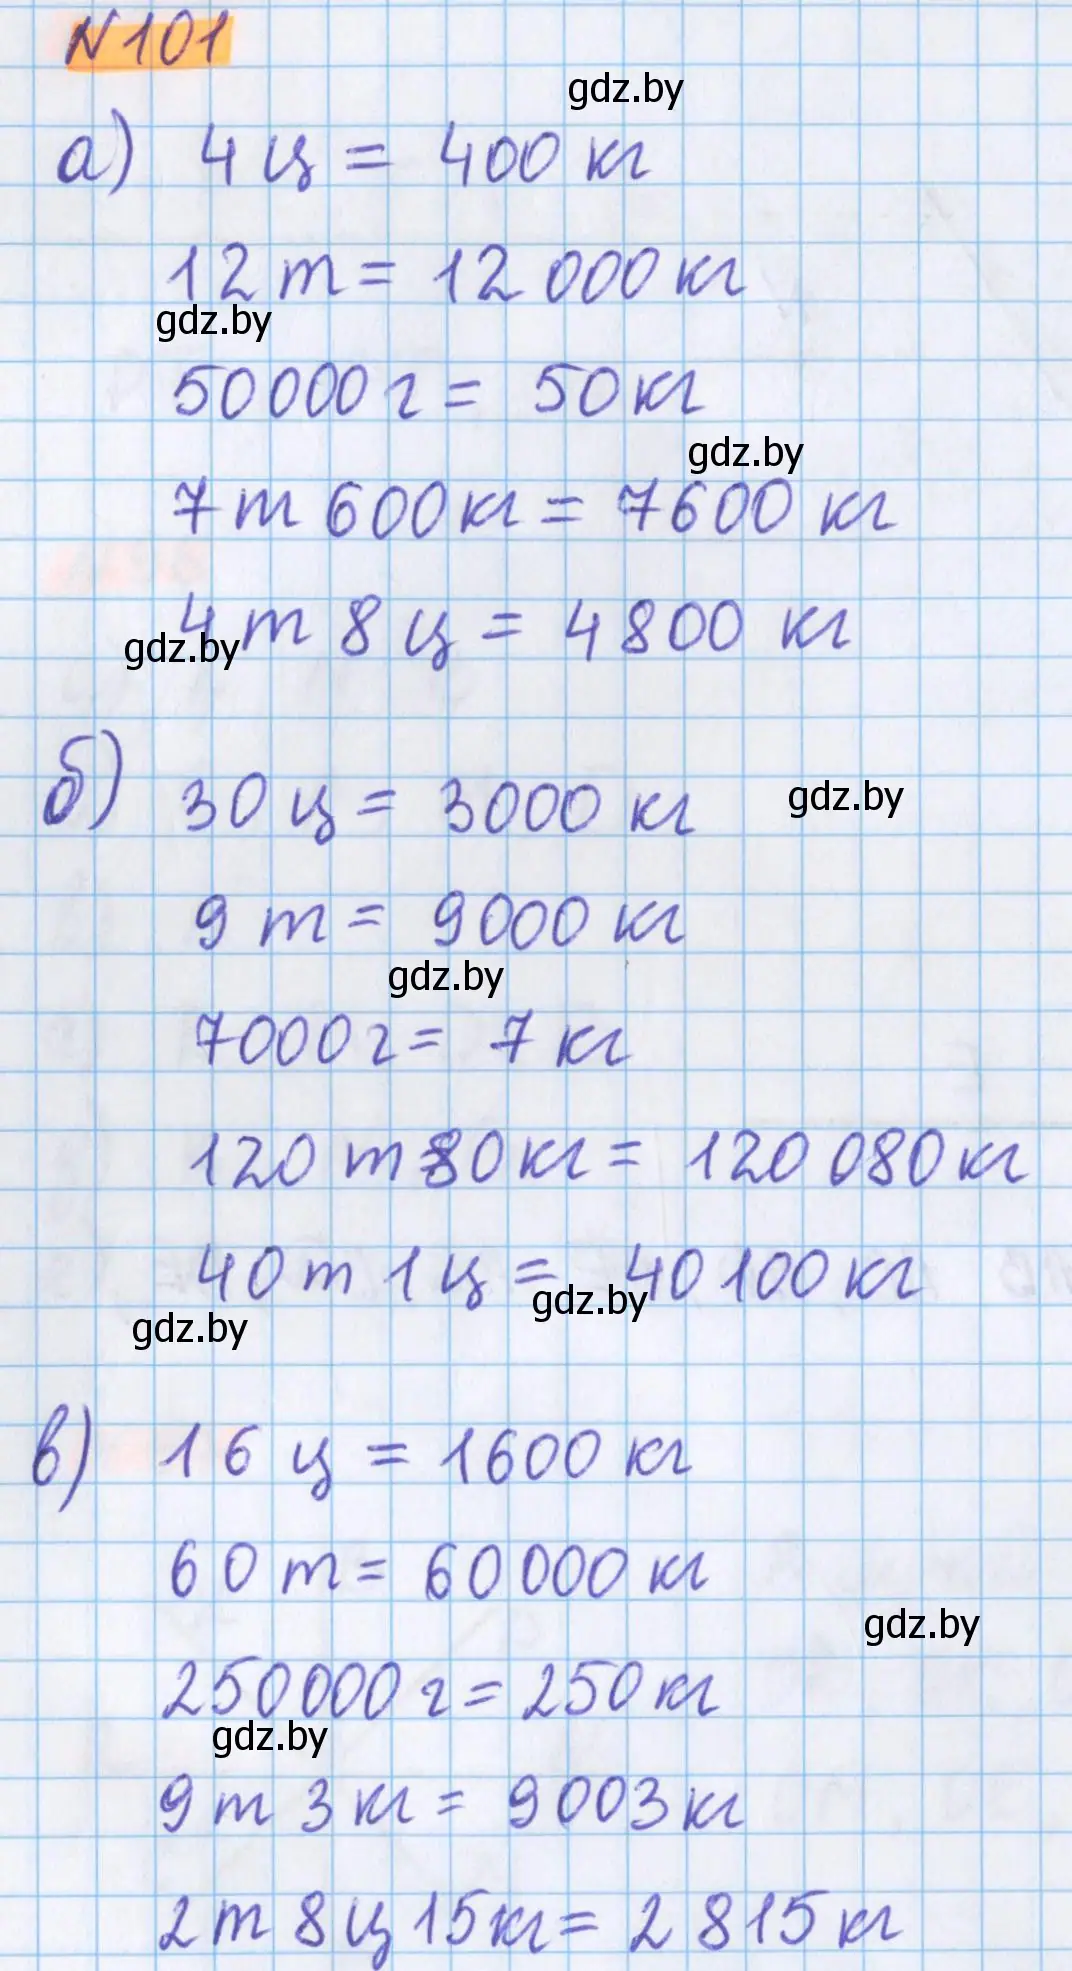 N 101
gdz.by
а) 4 ц = 400 кг
12 т = 12 000 кг
gdz.by
50000 г = 50 кг
gdz.by
7 т 600 кг = 7600 кг
4 т 8 ц = 4800 кг
gdz.by
б) 30 ц = 3000 кг
gdz.by
9 т = 9000 кг
gdz.by
7000 г = 7 кг
120 т 80 кг = 120 080 кг
40 т 1 ц = 40 100 кг
gdz.by
gdz.by
в) 16 ц = 1600 кг
60 т = 60 000 кг
gdz.by
250000 г = 250 кг
gdz.by
9 т 3 кг = 9003 кг
2 т 8 ц 15 кг = 2 815 кг